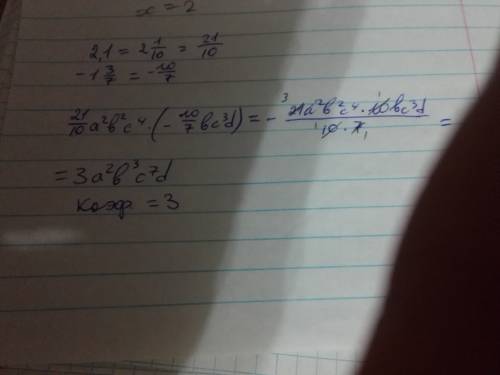 x = 2
2,1 = 2 1/10 = 21/10
-1 3/7 = -10/7
21/10 a²b²c⁴ · (- 10/7 bc³d) = - 3 21a²b²c⁴ · 1 10bc³d / 1 10 · 7 1 =
= 3a²b³c⁷d
коэф = 3